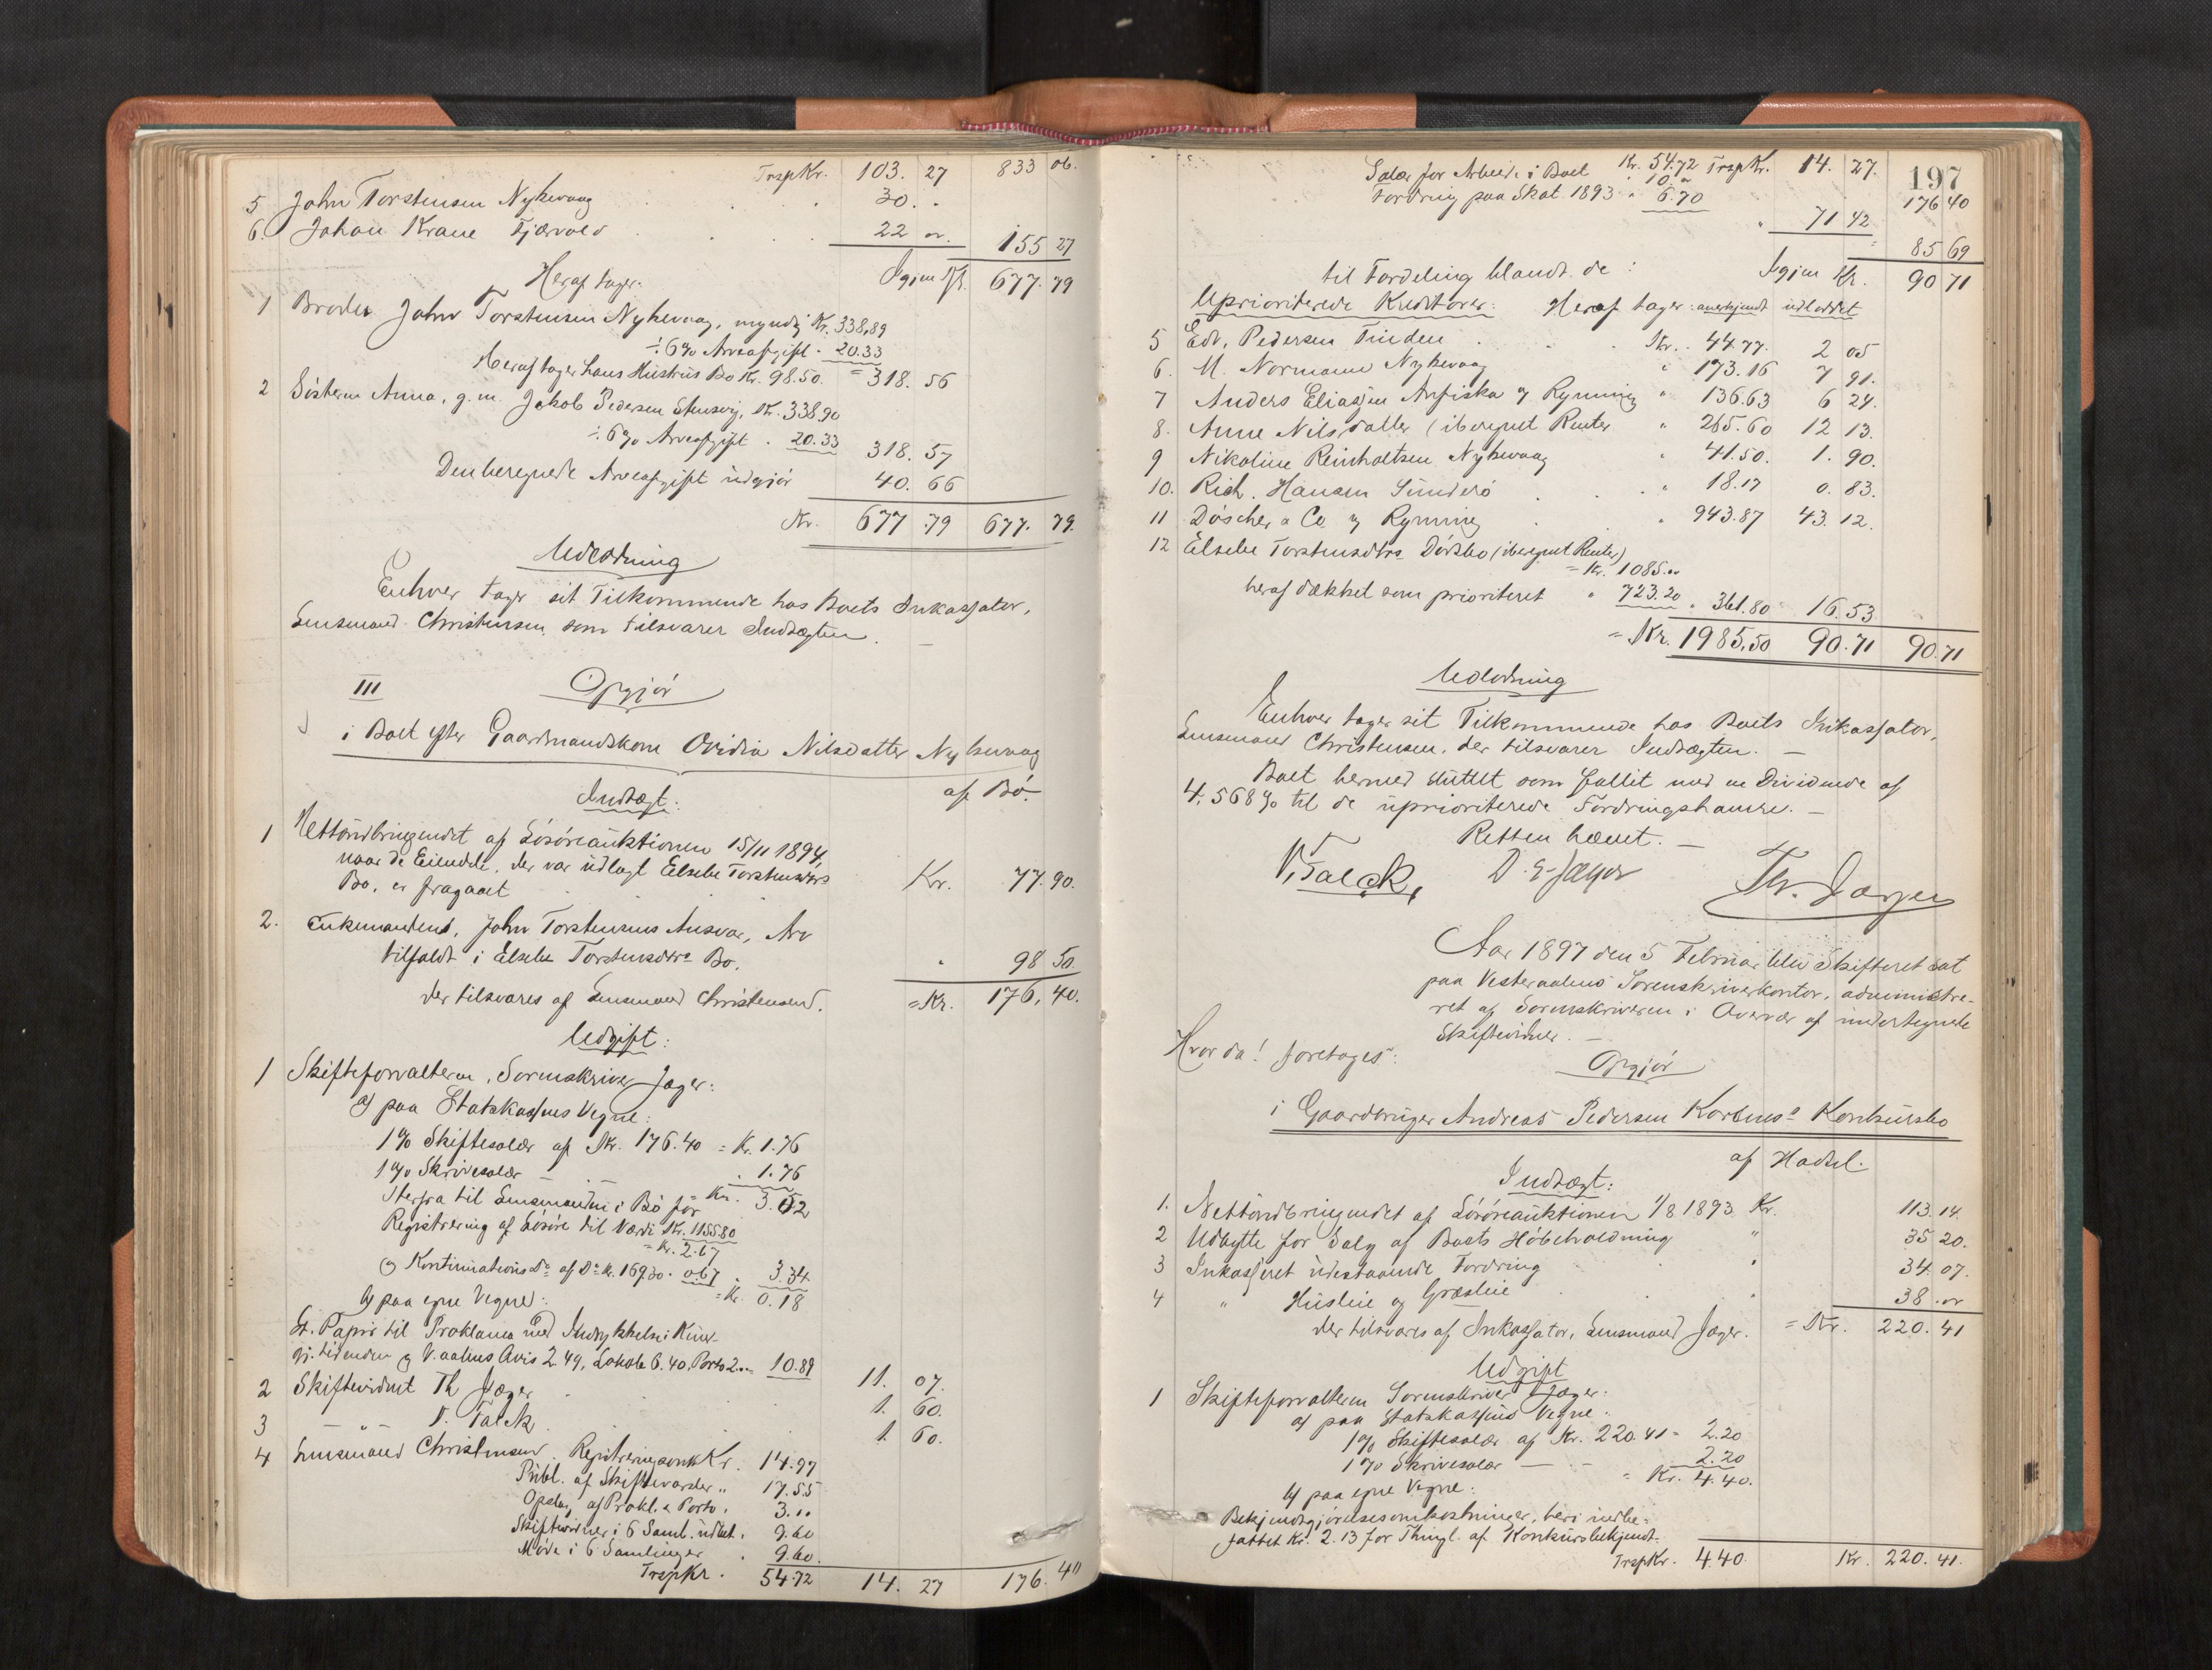 Trsp Kr. 103. 27 833 06.
5 John Torstensen Nykvaag 30. "
6. Johan Krane Fjærvold 22 " 155 27
Igjen Kr. 677. 79
Heraf tager:
1 Broder John Torstensen Nykvaag, myndig Kr. 338,89
÷ 6% Arveafgift - 20.33
Heraf tager hans Hustrus Bo Kr. 98.50. = 318. 56
2 Søsteren Anna, g.m. Jakob Pedersen Kr. 338.90
÷ 6% Arveafgift . 20.33 318. 57
Den beregnede Arveafgift udgjør 40. 66
Kr. 677.79 677. 79.
Udlodning
Enhver tager sit Tilkommende hos Boets Inkassator,
Lensmand Christensen som tilsvarer Indtægten. —
III Opgjør
i Boet efter Gaardmandskone Ovidia Nilsdatter Nykvaag
af Bø.
Indtægt:
1 Nettoudbringendet af Løsøreauktionen 15/11 1894,
naar de Eiendele, der var udlagt Elsebe Torstensdtrs
Bo, er fragaaet Kr. 77.90.
2. Enkemanden, John Torstensens Ansvar, Arv
tilfaldt i Elsebe Torstensdtrs Bo. " 98 50
der tilsvares af Lensmand Christensen. = Kr. 176, 40.
Udgift:
1 Skifteforvalteren, Sorenskriver Jæger:
a) paa Statskassens Vegne:
1% Skiftesalær af Kr. 176.40 = Kr. 1.76
1% Skrivesalær — . — . 1.76
= Kr. 3.52
Herfra til Lensmanden i Bø for
Registrering af Løsøre til Værdi Kr. 1155.80
= Kr. 2.67
og Kontinuations Do af Do Kr. 169.30 - 0.67 . 3.34
= Kr. 0.18
b) paa egne Vegne:
St. Papir til Proklama med Indrykkelse i Kund-
gj. tidenden og V.aalens Avis 2.49, Lokale 6.40, Porto 2.00 10.89 11. 07.
2 Skiftevidnet Th Jæger 1. 60.
3 — " — V. Falck 1. 60.
4 Lensmand Christensen Registreringsomk Kr. 14.97
Publ. af Skiftevarsler " 17.55
Opslag af Prokl. & Porto . 3.00
Skiftevidner i 6 Saml. udbet. 9.60
Møde i 6 Samlinger . 9.60.
Trsp Kr. 54.72 14. 27 176. 40
197
Kr. 54.72 Trsp Kr. 14. 27. 176 40
Salær for Arbeide i Boet " 10. "
Fordring paa Skat 1893 " 6.70
" 71 42
85 69
Igjen Kr. 90 71
til Fordeling blandt de:
Uprioriterede Kreditorer: Heraf tager: anerkjendt udloddet
5 Edv. Pedersen Tinden Kr. 44.77. 2 05
6. M. Normann Nykvaag " 173.16 7 91.
7 Anders Eliassen Anfiska og Rynning " 136.63 6 24.
8. Anne Nilsdatter (iberegnet Renter " 265.60 12 13.
9 Nikoline Reinholtsen Nykvaag " 41.50. 1. 90.
10. Rich. Hansen Sunderø " 18.17 0. 83.
11 Döscher & Co og Rynning " 943.87 43. 12.
12 Elsebe Torstensdtrs Dødsbo (iberegnet Renter)
= Kr. 1085.00
heraf dækket som prioriteret " 723.20 " 361.80 16.53
= Kr. 1985,50 90.71 90.71
Udlodning
Enhver tager sit Tilkommende hos Boets Inkassator,
Lensmand Christensen, der tilsvarer Indtægten. —
Boet hermed sluttet som fallit med en Dividende af
4.568% til de uprioriterede Fordringshavere. —
Retten hævet. —
V. Falck, D. E. Jæger Th. Jæger
Aar 1897 den 5 Februar blev Skifteret sat
paa Vesteraalens Sorenskriverkontor, administre-
ret af Sorenskriveren i Overvær af undertegnede
Skiftevidner. —
Hvorda! foretoges:
Opgjør
i Gaardbruger Andreas Pedersen Konkursbo
af Hadsel.
Indtægt:
1. Nettoudbringendet af Løsøreauktionen 1/8 1893 Kr. 113.14
2 Udbytte for Salg af Boets Høbeholdning " 35 20.
3 Inkasseret udestaaende Fordring " 34. 07.
4 " Husleie og Græsleie " 38. "
der tilsvares af Inkassator, Lensmand Jæger. = Kr. 220. 41
Udgift
1 Skifteforvalteren Sorenskriver Jæger:
a) paa Statskassens Vegne:
1% Skiftesalær af Kr. 220.41 = 2.20
1% Skrivesalær — - 2.20
= Kr. 4.40.
b) paa egne Vegne:
Bekjendtgjørelsesomkostninger, heri indbe-
fattet Kr. 2.13 for Thingl. af Konkursbekjendt-
Trsp Kr. 4.40. Kr. 220.41.